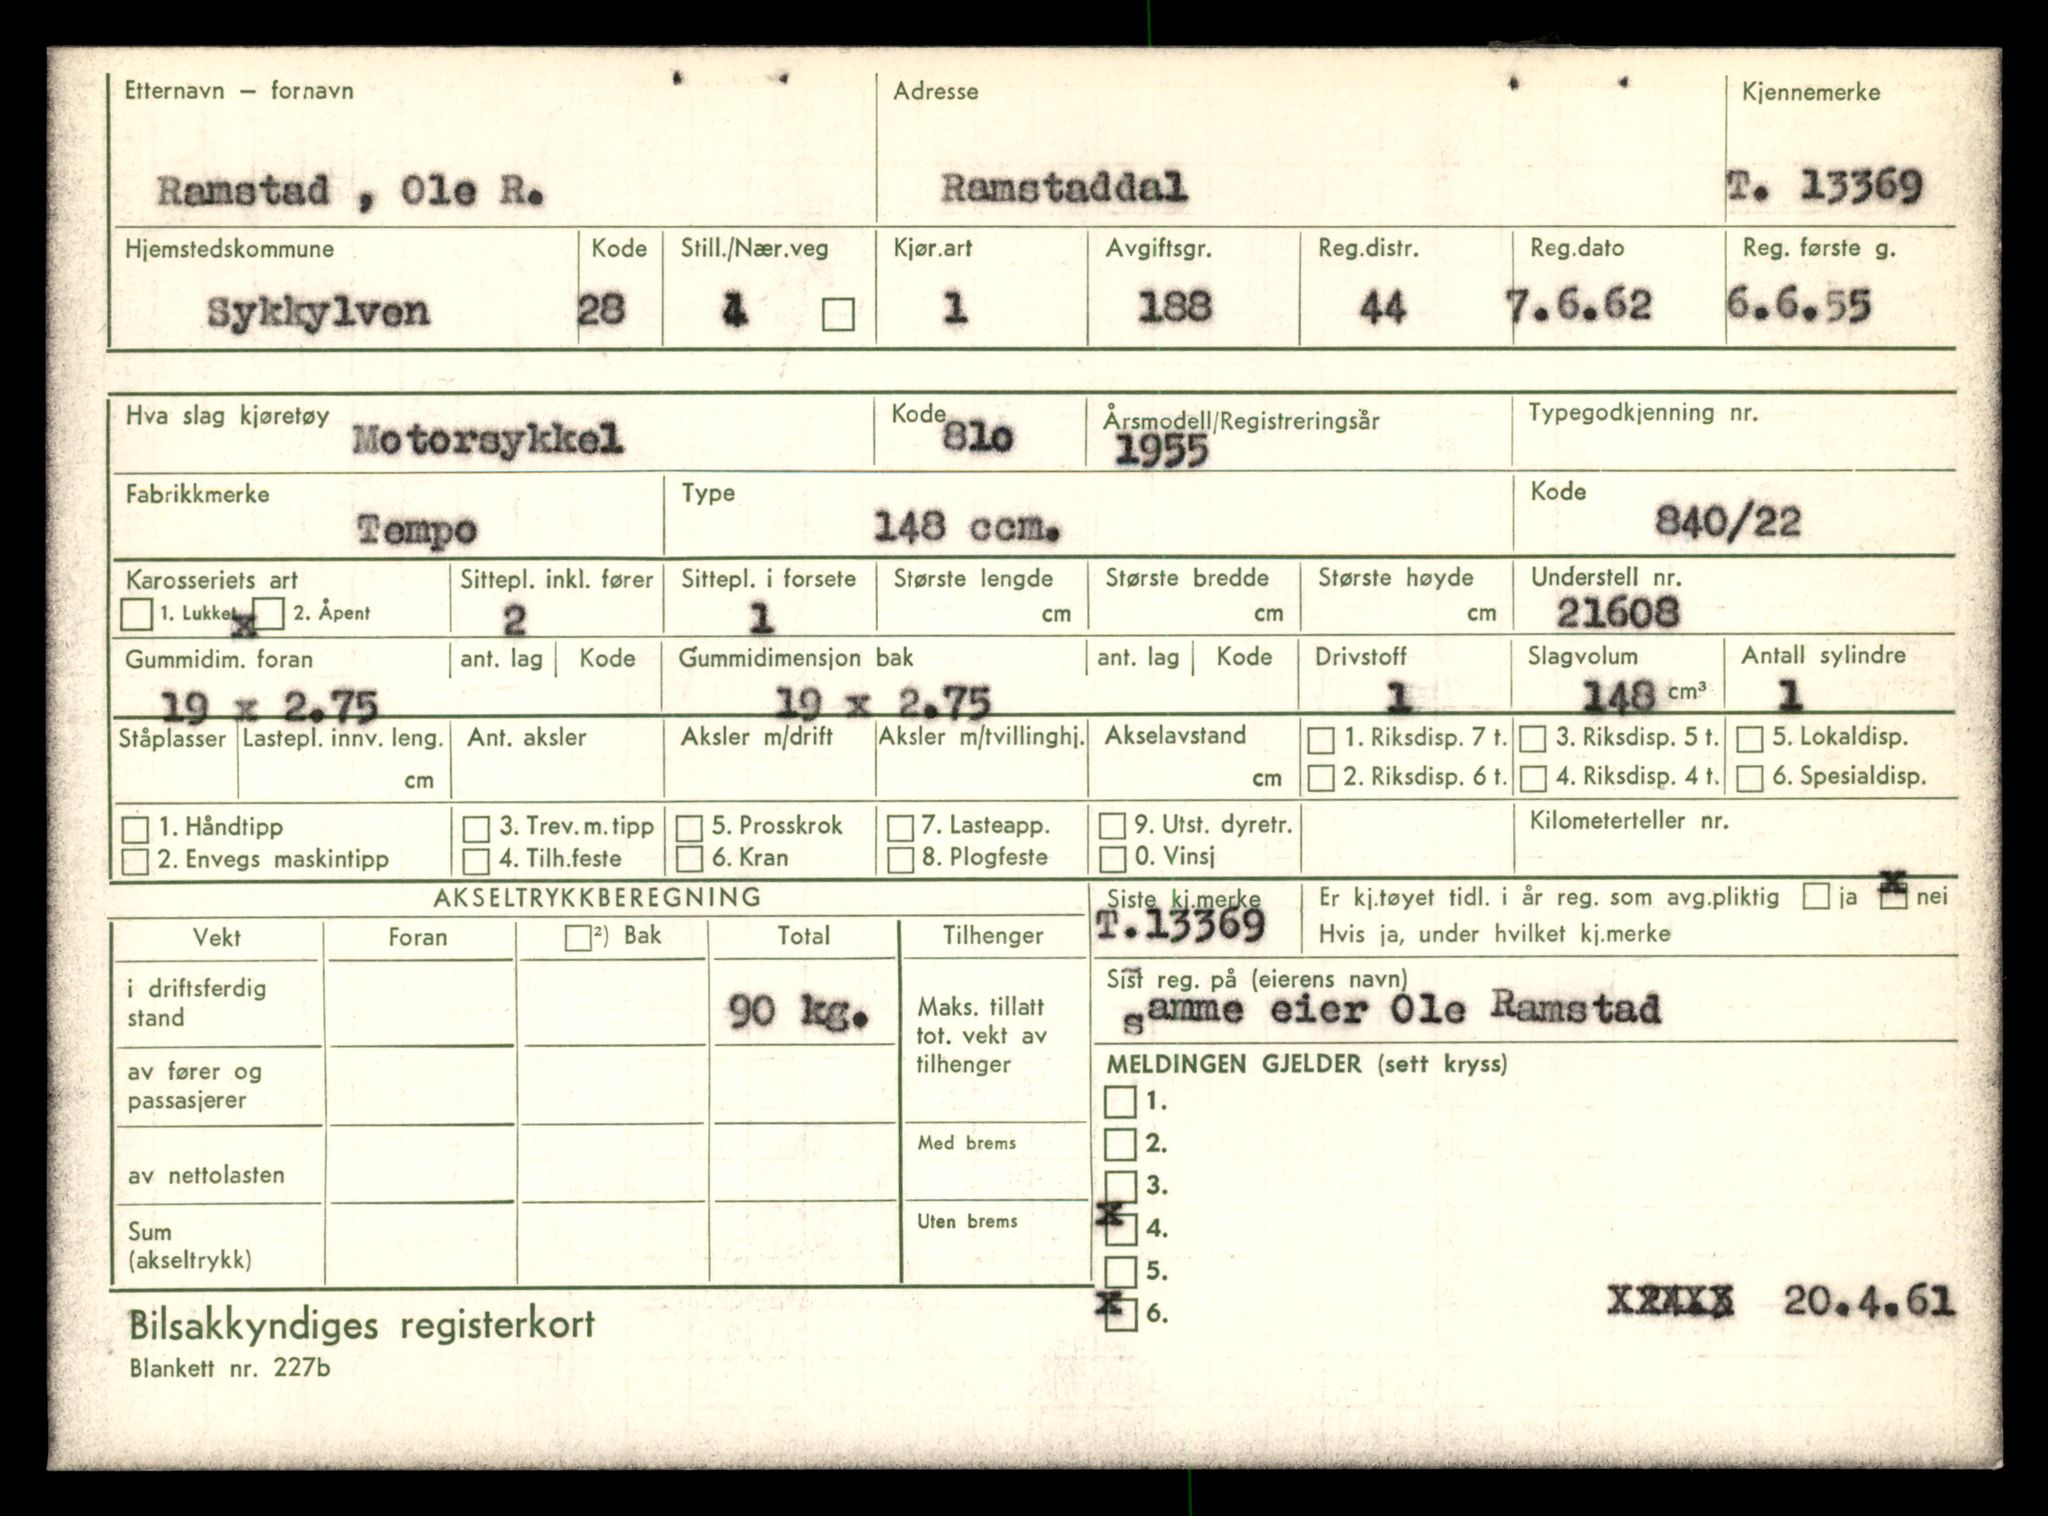 Etternavn — fornavn Adresse Kjennemerke
Ramstad , Ole R. Ramstaddal T. 13369
Hjemstedskommune Kode Still./Nær.veg Kjør.art Avgiftsgr. Reg.distr. Reg.dato Reg. første g.
Sykkylven 28 4 1 188 44 7.6.62 6.6.55
Hva slag kjøretøy Kode Årsmodell/Registreringsår Typegodkjenning nr.
Motorsykkel 810 1955
Fabrikkmerke Type Kode
Tempo 148 ccm. 840/22
Karosseriets art Sittepl. inkl. fører Sittepl. i forsete Største lengde Største bredde Største høyde Understell nr.
1. Lukket x 2. Åpent 2 1 cm cm cm 21608
Gummidim. foran ant. lag Kode Gummidimensjon bak ant. lag Kode Drivstoff Slagvolum Antall sylindre
19 x 2.75 19 x 2.75 1 148 cm³ 1
Ståplasser Lastepl. innv. leng. Ant. aksler Aksler m/drift Aksler m/tvillinghj. Akselavstand 1. Riksdisp. 7 t. 3. Riksdisp. 5 t. 5. Lokaldisp.
cm cm 2. Riksdisp. 6 t. 4. Riksdisp. 4 t. 6. Spesialdisp.
1. Håndtipp 3. Trev. m. tipp 5. Prosskrok 7. Lasteapp. 9. Utst. dyretr. Kilometerteller nr.
2. Envegs maskintipp 4. Tilh.feste 6. Kran 8. Plogfeste 0. Vinsj
AKSELTRYKKBEREGNING Siste kj.merke Er kj.tøyet tidl. i år reg. som avg.pliktig ja x nei
T.13369 Hvis ja, under hvilket kj.merke
Vekt Foran ²) Bak Total Tilhenger
Sist reg. på (eierens navn)
samme eier Ole Ramstad
i driftsferdig
stand 90 kg. Maks. tillatt
tot. vekt av
tilhenger
MELDINGEN GJELDER (sett kryss)
av fører og
passasjerer
1.
Med brems 2.
av nettolasten 3.
Sum
(akseltrykk) Uten brems x 4.
5.
x 6. 20.4.61
Bilsakkyndiges registerkort
Blankett nr. 227b